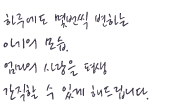 하루에도 몇번씩 변하는
아기의 모습.
엄마의 사랑을 평생
간직할 수 있게 해드립니다.